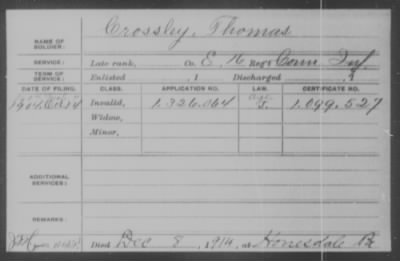 NAME OF SOLDIER: Crossley, Thomas
SERVICE: Late rank, Co. E, Reg't Conn. Inf.
TERM OF SERVICE: Enlisted , 1 Discharged , 1
DATE OF FILING. CLASS. APPLICATION NO. LAW. CERTIFICATE NO.
Invalid, 1.326.064 1.099.527
Widow,
Minor,
ADDITIONAL SERVICES:
REMARKS:
Died Dec 8, 1914, at Honesdale Pa